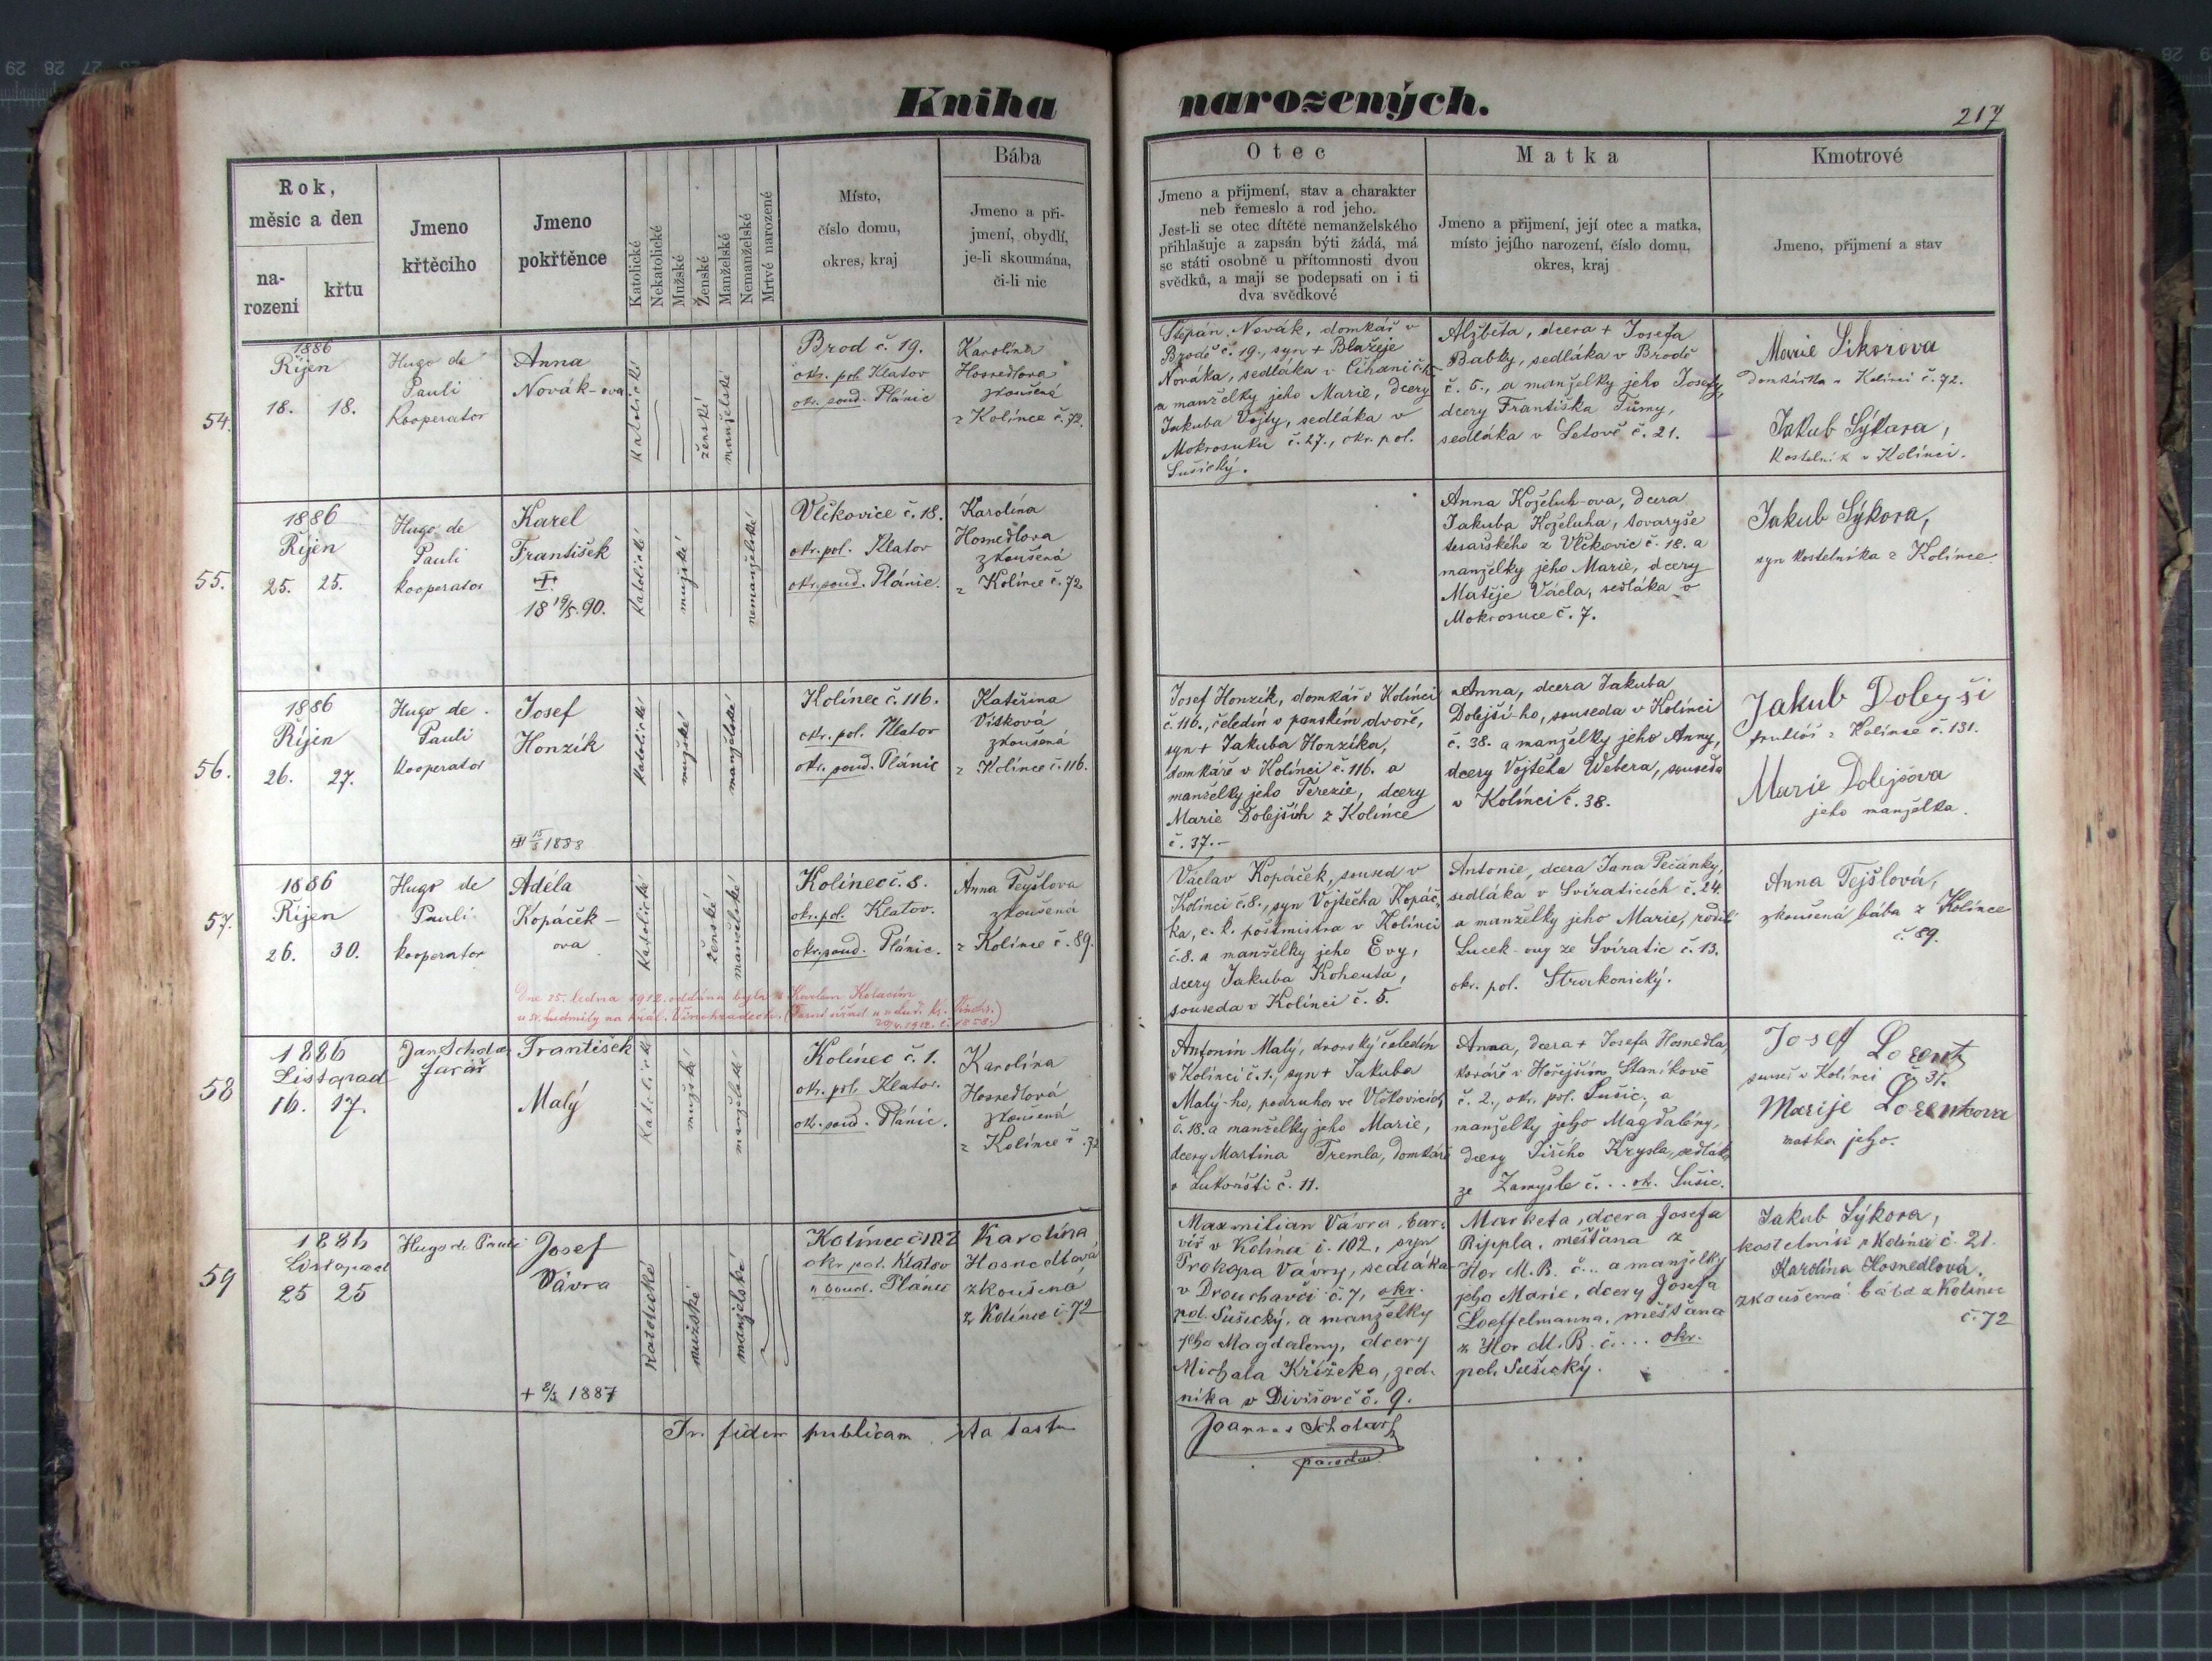 Kniha narozených.
217
Rok,
měsíc a den
na-
rození
křtu
Jmeno
křtěcího
Jmeno
pokřtěnce
Katolické
Nekatolické
Mužské
Ženské
Manželské
Nemanželské
Mrtvé narozené
Místo,
číslo domu,
okres, kraj
Bába
Jmeno a při-
jmení, obydlí,
je-li skoumána,
či-li nic
Otec
Jmeno a přijmení, stav a charakter
neb řemeslo a rod jeho.
Jest-li se otec dítěte nemanželského
přihlašuje a zapsán býti žádá, má
se státi osobně u přítomnosti dvou
svědků, a mají se podepsati on i ti
dva svědkové
Matka
Jmeno a přijmení, její otec a matka,
místo jejího narození, číslo domu,
okres, kraj
Kmotrové
Jmeno, přijmení a stav
54.
1886
Říjen
18. 18.
Hugo de
Pauli
Kooperator
Anna
Novák-ova
Katolické
ženské
manželské
Brod č. 19.
okr. pol. Klatov
okr. soud. Plánic
Karolína
Hosnedlova
zkoušená
z Kolínce č. 72.
Štěpán Novák, domkář v
Brodě č. 19., syn + Blažeje
Nováka, sedláka v
a manželky jeho Marie, dcery
Jakuba Vojty, sedláka v
Mokrosuku č. 27., okr. pol.
Sušický.
Alžběta, dcera + Josefa
Babky, sedláka v Brodě
č. 5., a manželky jeho Josefy,
dcery Františka Tůmy,
sedláka v Letově č. 21.
Marie Sikorova
Domkářka v Kolinci č. 72.
Jakub Sýkora,
Kostelník v Kolínci.
55.
1886
Říjen
25. 25.
Hugo de
Pauli
kooperator
Karel
František
18 19/5. 90.
katolické
mužské
nemanželské
Vlčkovice č. 18.
okr. pol. Klatov
okr. soud. Plánic.
Karolína
Hosnedlova
zkoušená
z Kolínce č. 72
Anna Koželuh-ova, dcera
Jakuba Koželuha, tovaryše
tesařského z Vlčkovic č. 18. a
manželky jeho Marie, dcery
Matěje Václa, sedláka v
Mokrosuce č. 7.
Jakub Sýkora,
syn kostelníka z Kolínce.
56.
1886
Říjen
26. 27.
Hugo de
Pauli
kooperator
Josef
Honzík
15/5 1888
katolické
mužské
manželské
Kolínec č. 116.
okr. pol. Klatov
okr. soud. Plánic
Kateřina
Vísková
zkoušená
z Kolínce č. 116.
Josef Honzík, domkář v Kolínci
č. 116., čeledín v panském dvoře,
syn + Jakuba Honzíka,
domkáře v Kolínci č. 116. a
manželky jeho Terezie, dcery
Marie Dolejších z Kolínce
č. 37.
Anna, dcera Jakuba
Dolejší-ho, souseda v Kolínci
č. 38. a manželky jeho Anny,
dcery Vojtěcha Webera, souseda
v Kolínci č. 38.
Jakub Dolejší
z Kolínce č. 131.
Marie Dolejšova
jeho manželka.
57.
1886
Říjen
26. 30.
Hugo de
Pauli
kooperator
Adéla
Kopáček-
ova
Katolické
ženské
manželské
Kolínec č. 8.
okr. pol. Klatov.
okr. soud. Plánic.
Anna Tejšlova
zkoušená
z Kolínce č. 89.
Dne 25. ledna 1912 oddána byla s Karlem
u sv. Ludmily na Král. Vinohradech.
Václav Kopáček, soused v
Kolínci č. 8., syn Vojtěcha Kopáč-
ka, c. k. poštmistra v Kolínci
č. 8. a manželky jeho Evy,
dcery Jakuba Kohouta,
souseda v Kolínci č. 5.
Antonie, dcera Jana Pečánky,
sedláka v Svíraticích č. 24.
a manželky jeho Marie, rodilé
Lucek-ovy ze Svíratic č. 13.
okr. pol. Strakonický.
Anna Tejšlová,
zkoušená bába z Kolínce
č. 89.
58
1886
Listopad
16. 17.
Jan Scholar
farář
František
Malý
Katolické
mužské
manželské
Kolínec č. 1.
okr. pol. Klatov.
okr. soud. Plánic.
Karolína
Hosnedlová
zkoušená
z Kolínce č. 72
Antonín Malý, dvorský čeledín
v Kolínci č. 1., syn + Jakuba
Malý-ho, podruha ve Vlčkovicích
č. 18. a manželky jeho Marie,
dcery Martina Tremla, domkáře
v Lukoršti č. 11.
Anna, dcera + Josefa Hosnedla,
kováře v Hořejším Staňkově
č. 2., okr. pol. Sušic, a
manželky jeho Magdalény,
dcery Jiřího Krysla, sedláka
ze Zamyšle č. .. ok. Sušic.
Josef Lorentz
soused v Kolínci č. 31.
Marije Lorentzova
matka jeho.
59
1886
Listopad
25 25
Hugo de Pauli
Josef
Vávra
+ 2/5 1887
Katolické
mužské
manželské
Kolínec č 102
okr. pol. Klatov
" soud. Plánic
Karolína
Hosnedlová
zkoušená
z Kolínce č. 72
Maxmilian Vávra, bar-
víř v Kolínci č. 102, syn
Prokopa Vávry, sedláka
v Drouhavči č. 7, okr.
pol. Sušický, a manželky
jeho Magdaleny, dcery
Michala Křížeka, zed-
níka v Divišově č. 9.
Marketa, dcera Josefa
Rippla, měšťana z
Hor M. B. č... a manželky
jeho Marie, dcery Josefa
Loeffelmanna, měšťana
z Hor M. B. č.... okr.
pol. Sušický.
Jakub Sýkora,
kostelník v Kolínci č. 21.
Karolína Hosnedlová,
zkoušená bába z Kolínce
č. 72
In fidem publicam ita testor
Joannes Scholar
parochus